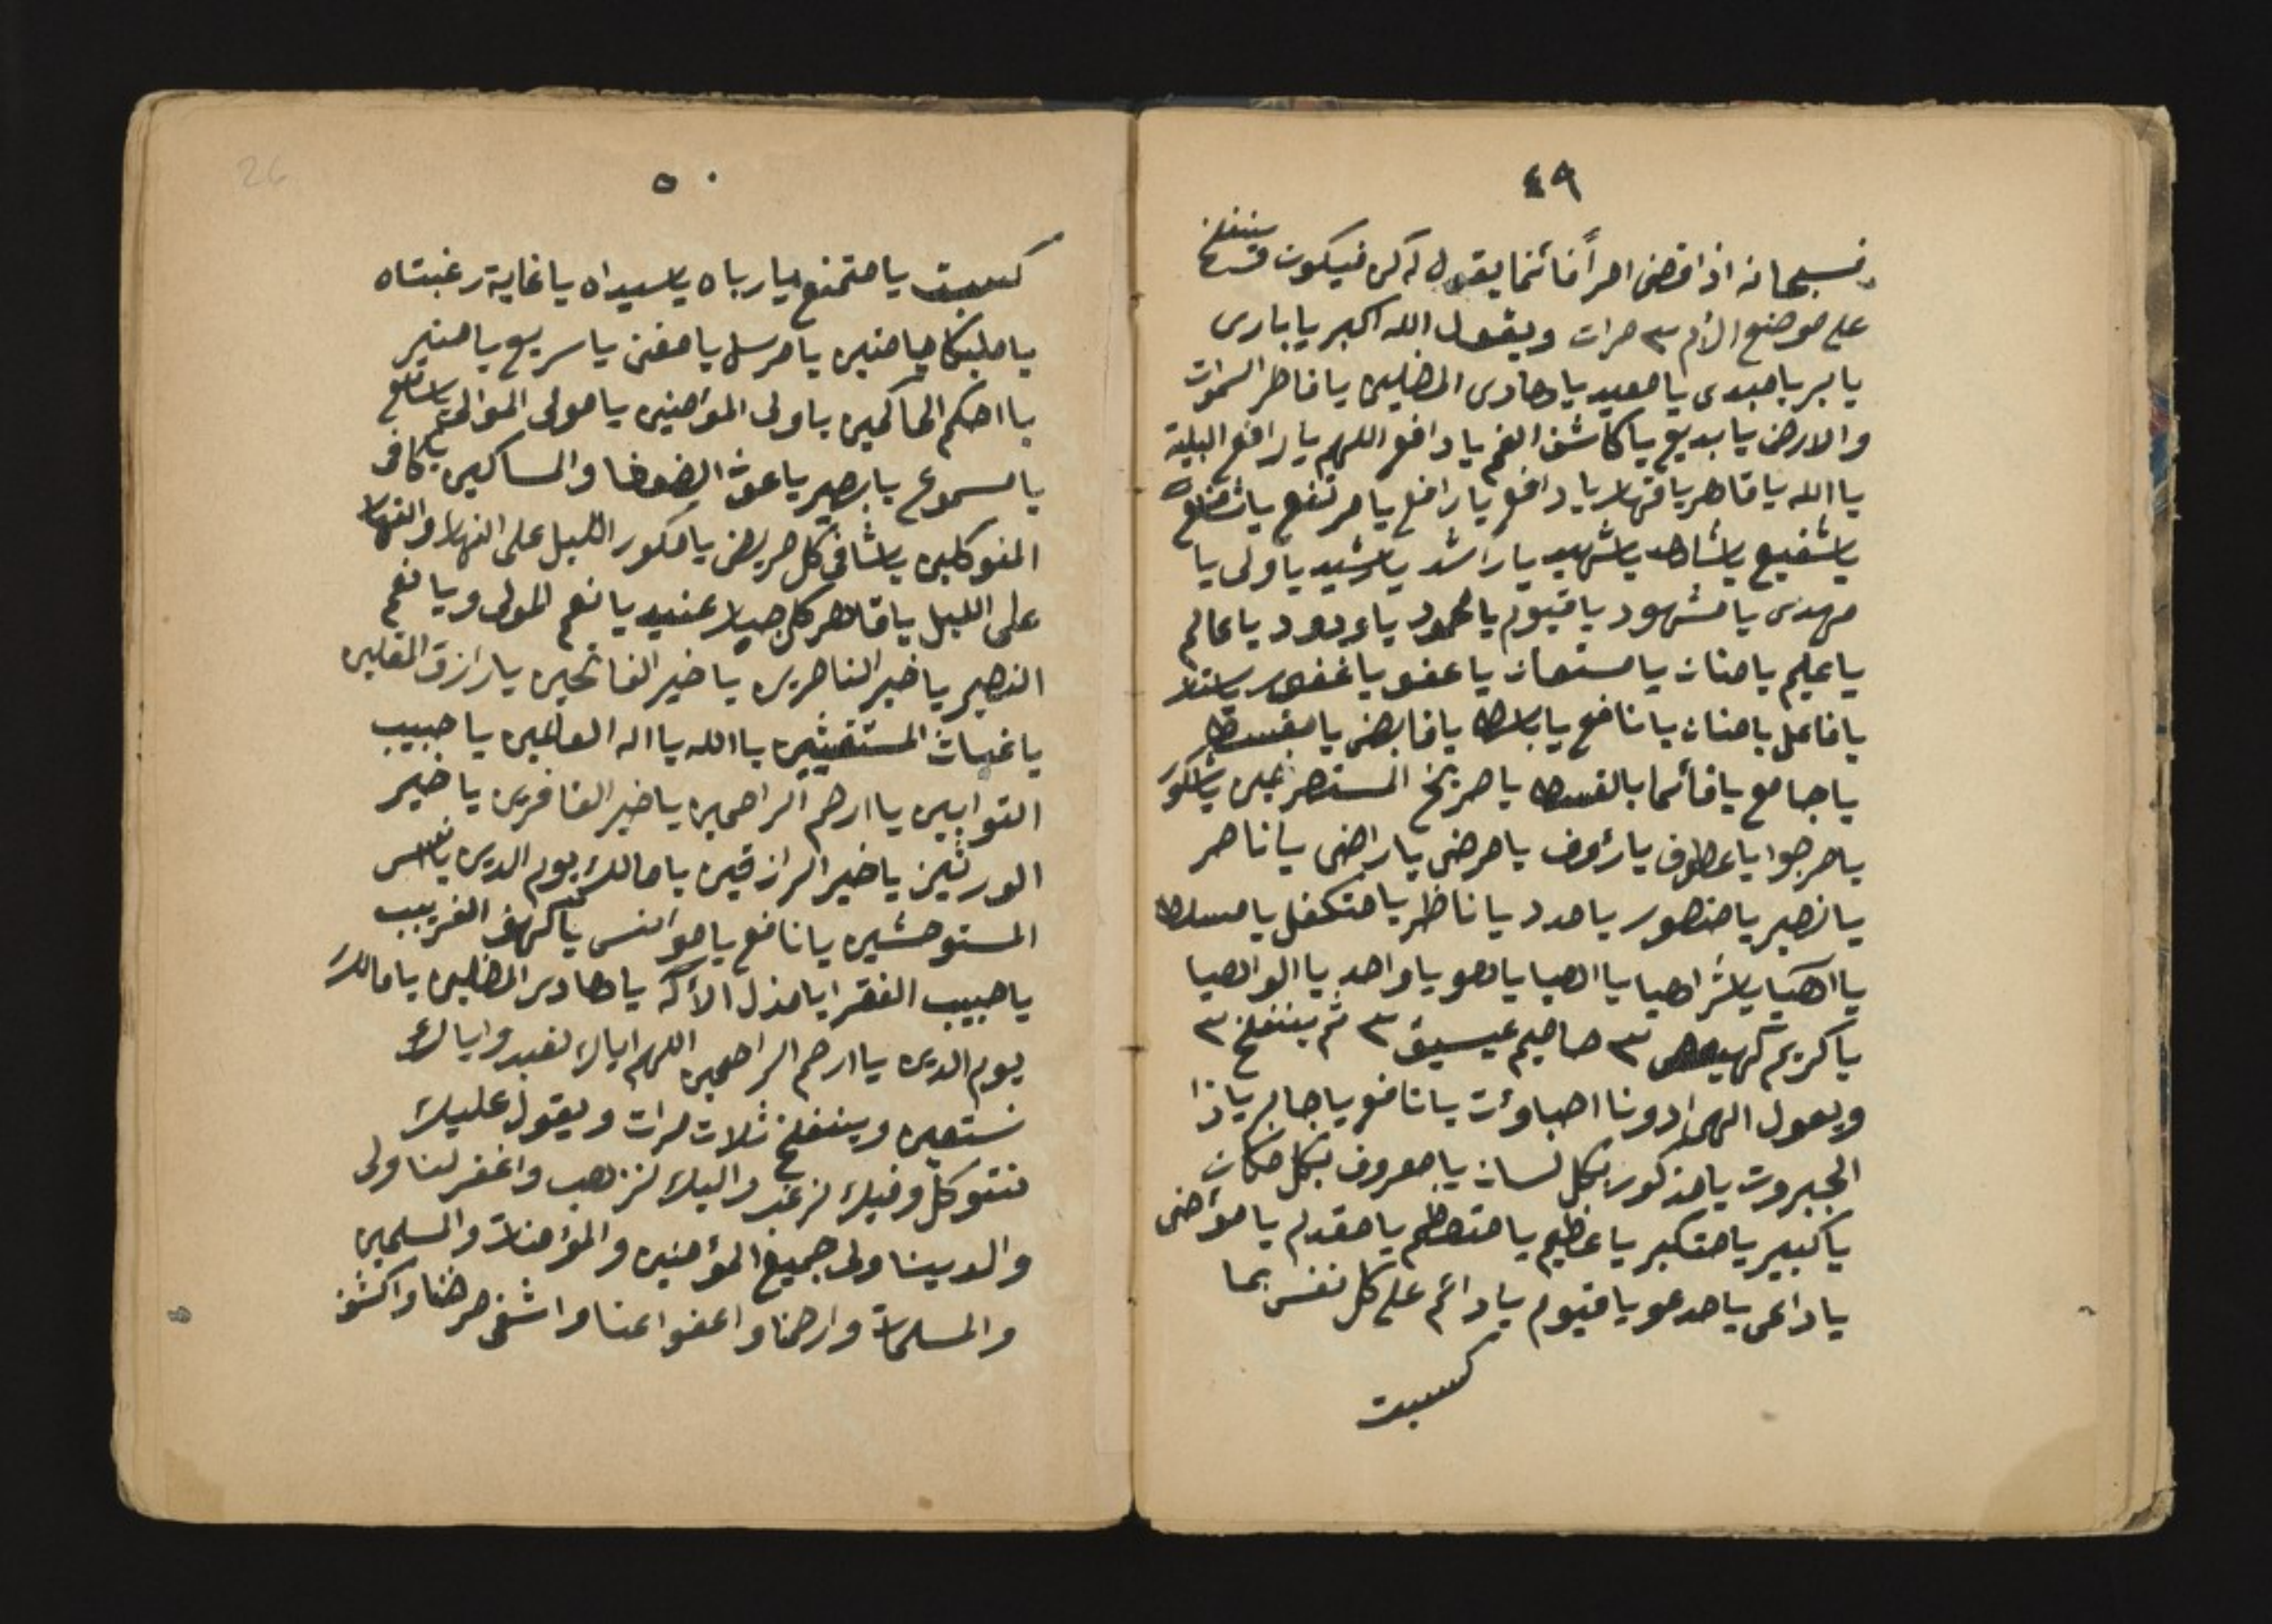 ٤٩
فسبحانه اذا قضى امرأ فائنما يقول له كن فيكون وتنفخ
على موضع الألم ٣ مرات ويقول الله اكبر يا بارى
يا بر يا مبدى يا معيد يا هادى المضلين يا فاطر السموات
والارض يا بديع يا كاشف الغم يا دافع اللهم يا رافع البلية
يا الله يا قاهر يا قهار يا دافع يا رافع يا مرتفع يا شافع
يا شفيع يا شاهد يا شهيد يا راشد يا رشيد يا ولى يا
مهدى يا مشهود يا قيوم يا محمود يا ودود يا عالم
يا عليم يا منان يا مستعان يا عفو يا غفور يا ستار
يا فاعل يا منان يا نافع يا باسط يا قابض يا مقسط
يا جامع يا قائما بالقسط يا صريخ المستصرخين يا شكور
يا مرجوا يا عطوف يا رؤف يا مرضى يا راضى يا ناصر
يا نصير يا منصور يا مدد يا ناظر يا متكفل يا مسلط
يا اهيا يا شراهيا يا الهيا يا هو يا واحد يا الوالهيا
يا كريم كهيعص ٣ حاميم عيسيق ٣ ثم ينفخ ٣
ويعول الهم ادونا اصباوءت يا نافع يا جابر ياذا
الجبروت يا مذكور بكل لسان يا معروف بكل مكان
يا كبير يا متكبر يا عظيم يا متعظم يا مقدم يا مؤخى
يا داعى يا مدعو يا قيوم يا دائم على كل نفس بما
كسبت
٥٠
كسبت يا ممتنع يا رباه يا سيداه يا غاية رغبتاه
يا مليكا يا منير يا مرسل يا مغنى يا سريع يا منير
يا احكم الحاكمين يا ولى المؤمنين يا مولى الموالى يا سامع
يا مسموع يا بصير يا غوث الضعفا والمساكين يا كافى
المتوكلين يا شافى كل مريض يا مكور الليل على النهار والنهار
على الليل يا قاهر كل جبار عنيد يا نعم المولى ويا نعم
النصير يا خير الناصرين يا خير الفاتحين يا رازق المقلين
يا غياث المستغيثين يا الله يا اله العالمين يا حبيب
التوابين يا ارحم الراحمين يا خير الغافرين يا خير
الورثين يا خير الرازقين يا مالك يوم الدين يا انس
المستوحشين يا نافع يا موانس يا كهف الغريب
يا حبيب الفقرا يا منزل الأكه يا هادى المضلين يا مالك
يوم الدين يا ارحم الراحمين اللهم اياك نعبد واياك
نستعين وينفخ ثلاث مرات ويقول عليك
نتوكل وفيك نرغب واليك نزهب واغفر لنا ولى
والدينا ولى جميع المؤمنين والمؤمنات والمسلمين
والمسلمات وارحمنا واعفوا عنا واشفى مرضنا واكشف
26